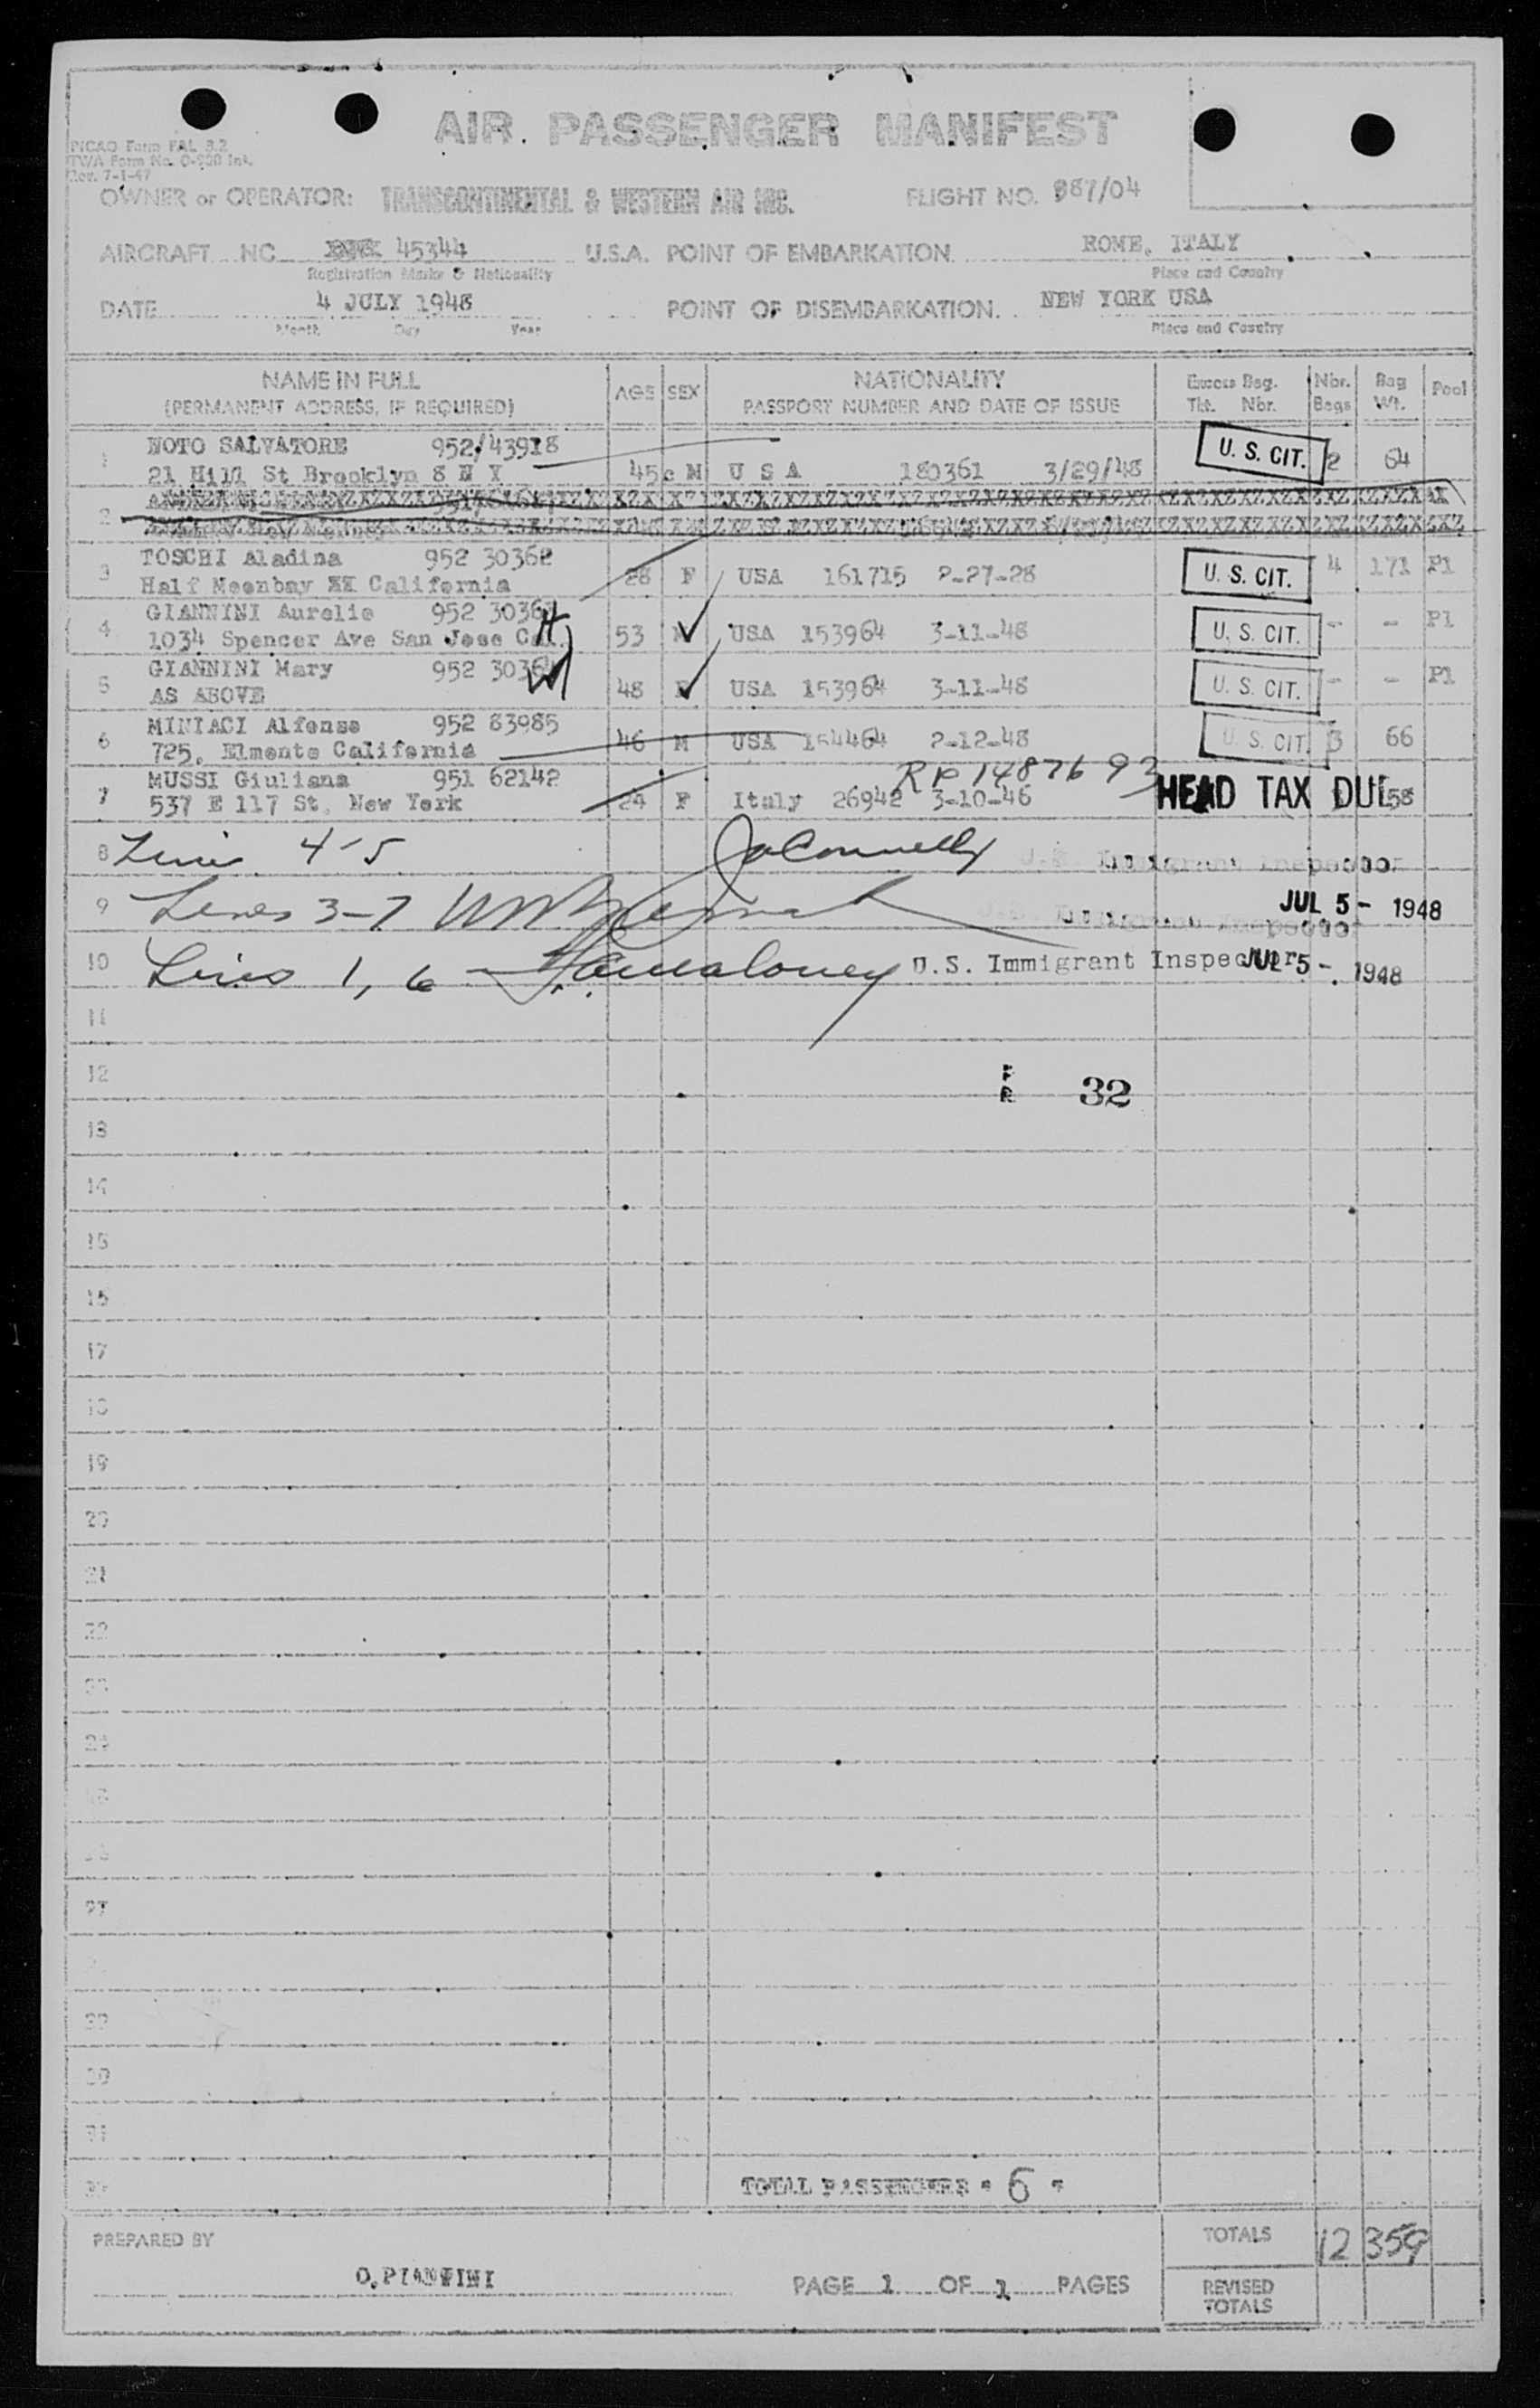 AIR PASSENGER MANIFEST
PICAO Form FAL 3.2
TWA Form No. O-900 Int.
Rev. 7-1-47
OWNER or OPERATOR: TRANSCONTINENTAL & WESTERN AIR INC. FLIGHT NO. 987/04
AIRCRAFT NC 45344 U.S.A. POINT OF EMBARKATION ROME, ITALY
Registration Marks & Nationality Place and Country
DATE 4 JULY 1948 POINT OF DISEMBARKATION. NEW YORK USA
Month Day Year Place and Country
NAME IN FULL AGE SEX NATIONALITY Excess Bag. Nbr. Bag Pool
(PERMANENT ADDRESS, IF REQUIRED) PASSPORT NUMBER AND DATE OF ISSUE Tkt. Nbr. Bags Wt.
1 NOTO SALVATORE 952/43918 U. S. CIT. 2 64
21 Hill St Brooklyn 8 N Y 45 M U S A 180361 3/29/48
2
3 TOSCHI Aladina 952 30362 U. S. CIT. 4 171 P1
Half Moonbay XX California 28 F USA 161715 2-27-28
4 GIANNINI Aurelio 952 3036 U. S. CIT. - - P1
1034 Spencer Ave San Jose Cal. 53 M USA 153964 3-11-48
5 GIANNINI Mary 952 30364 U. S. CIT. - - P1
AS ABOVE 48 F USA 153964 3-11-48
6 MINIACI Alfonso 952 83985 U. S. CIT. 3 66
725, Elmonte California 46 M USA 154464 2-12-48
7 MUSSI Giuliana 951 62142 RP 1487693
537 E 117 St. New York 24 F Italy 26942 3-10-46 HEAD TAX DUE 58
8 Lines 4-5 JoConnelly U.S. Immigrant Inspector
9 Lines 3-7 JUL 5 - 1948
U.S. Immigrant Inspector
10 Lines 1, 6 Maloney U.S. Immigrant Inspector JUL 5 - 1948
11
12 32
13
14
15
16
17
18
19
20
21
22
23
24
27
TOTAL PASSENGERS = 6 =
PREPARED BY TOTALS 12 359
O.PIANTINI PAGE 1 OF 1 PAGES REVISED
TOTALS